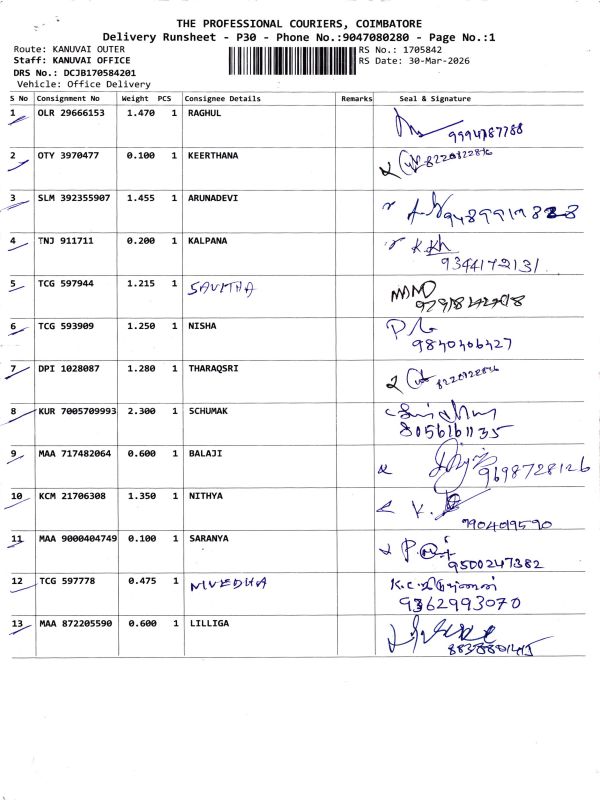 THE PROFESSIONAL COURIERS, COIMBATORE
Delivery Runsheet - P30 - Phone No.:9047080280 - Page No.:1
Route: KANUVAI OUTER RS No.: 1705842
Staff: KANUVAI OFFICE RS Date: 30-Mar-2026
DRS No.: DCJB170584201
Vehicle: Office Delivery
S No Consignment No Weight PCS Consignee Details Remarks Seal & Signature
1 OLR 29666153 1.470 1 RAGHUL
2 OTY 3970477 0.100 1 KEERTHANA 8220822876
3 SLM 392355907 1.455 1 ARUNADEVI
4 TNJ 911711 0.200 1 KALPANA 9344172131
5 TCG 597944 1.215 1 SAVITHA
6 TCG 593909 1.250 1 NISHA 9840406427
7 DPI 1028087 1.280 1 THARAQSRI
8 KUR 7005709993 2.300 1 SCHUMAK 8056161135
9 MAA 717482064 0.600 1 BALAJI 9698728126
10 KCM 21706308 1.350 1 NITHYA
11 MAA 9000404749 0.100 1 SARANYA 9500247382
12 TCG 597778 0.475 1 NIVEDHA 9362993070
13 MAA 872205590 0.600 1 LILLIGA